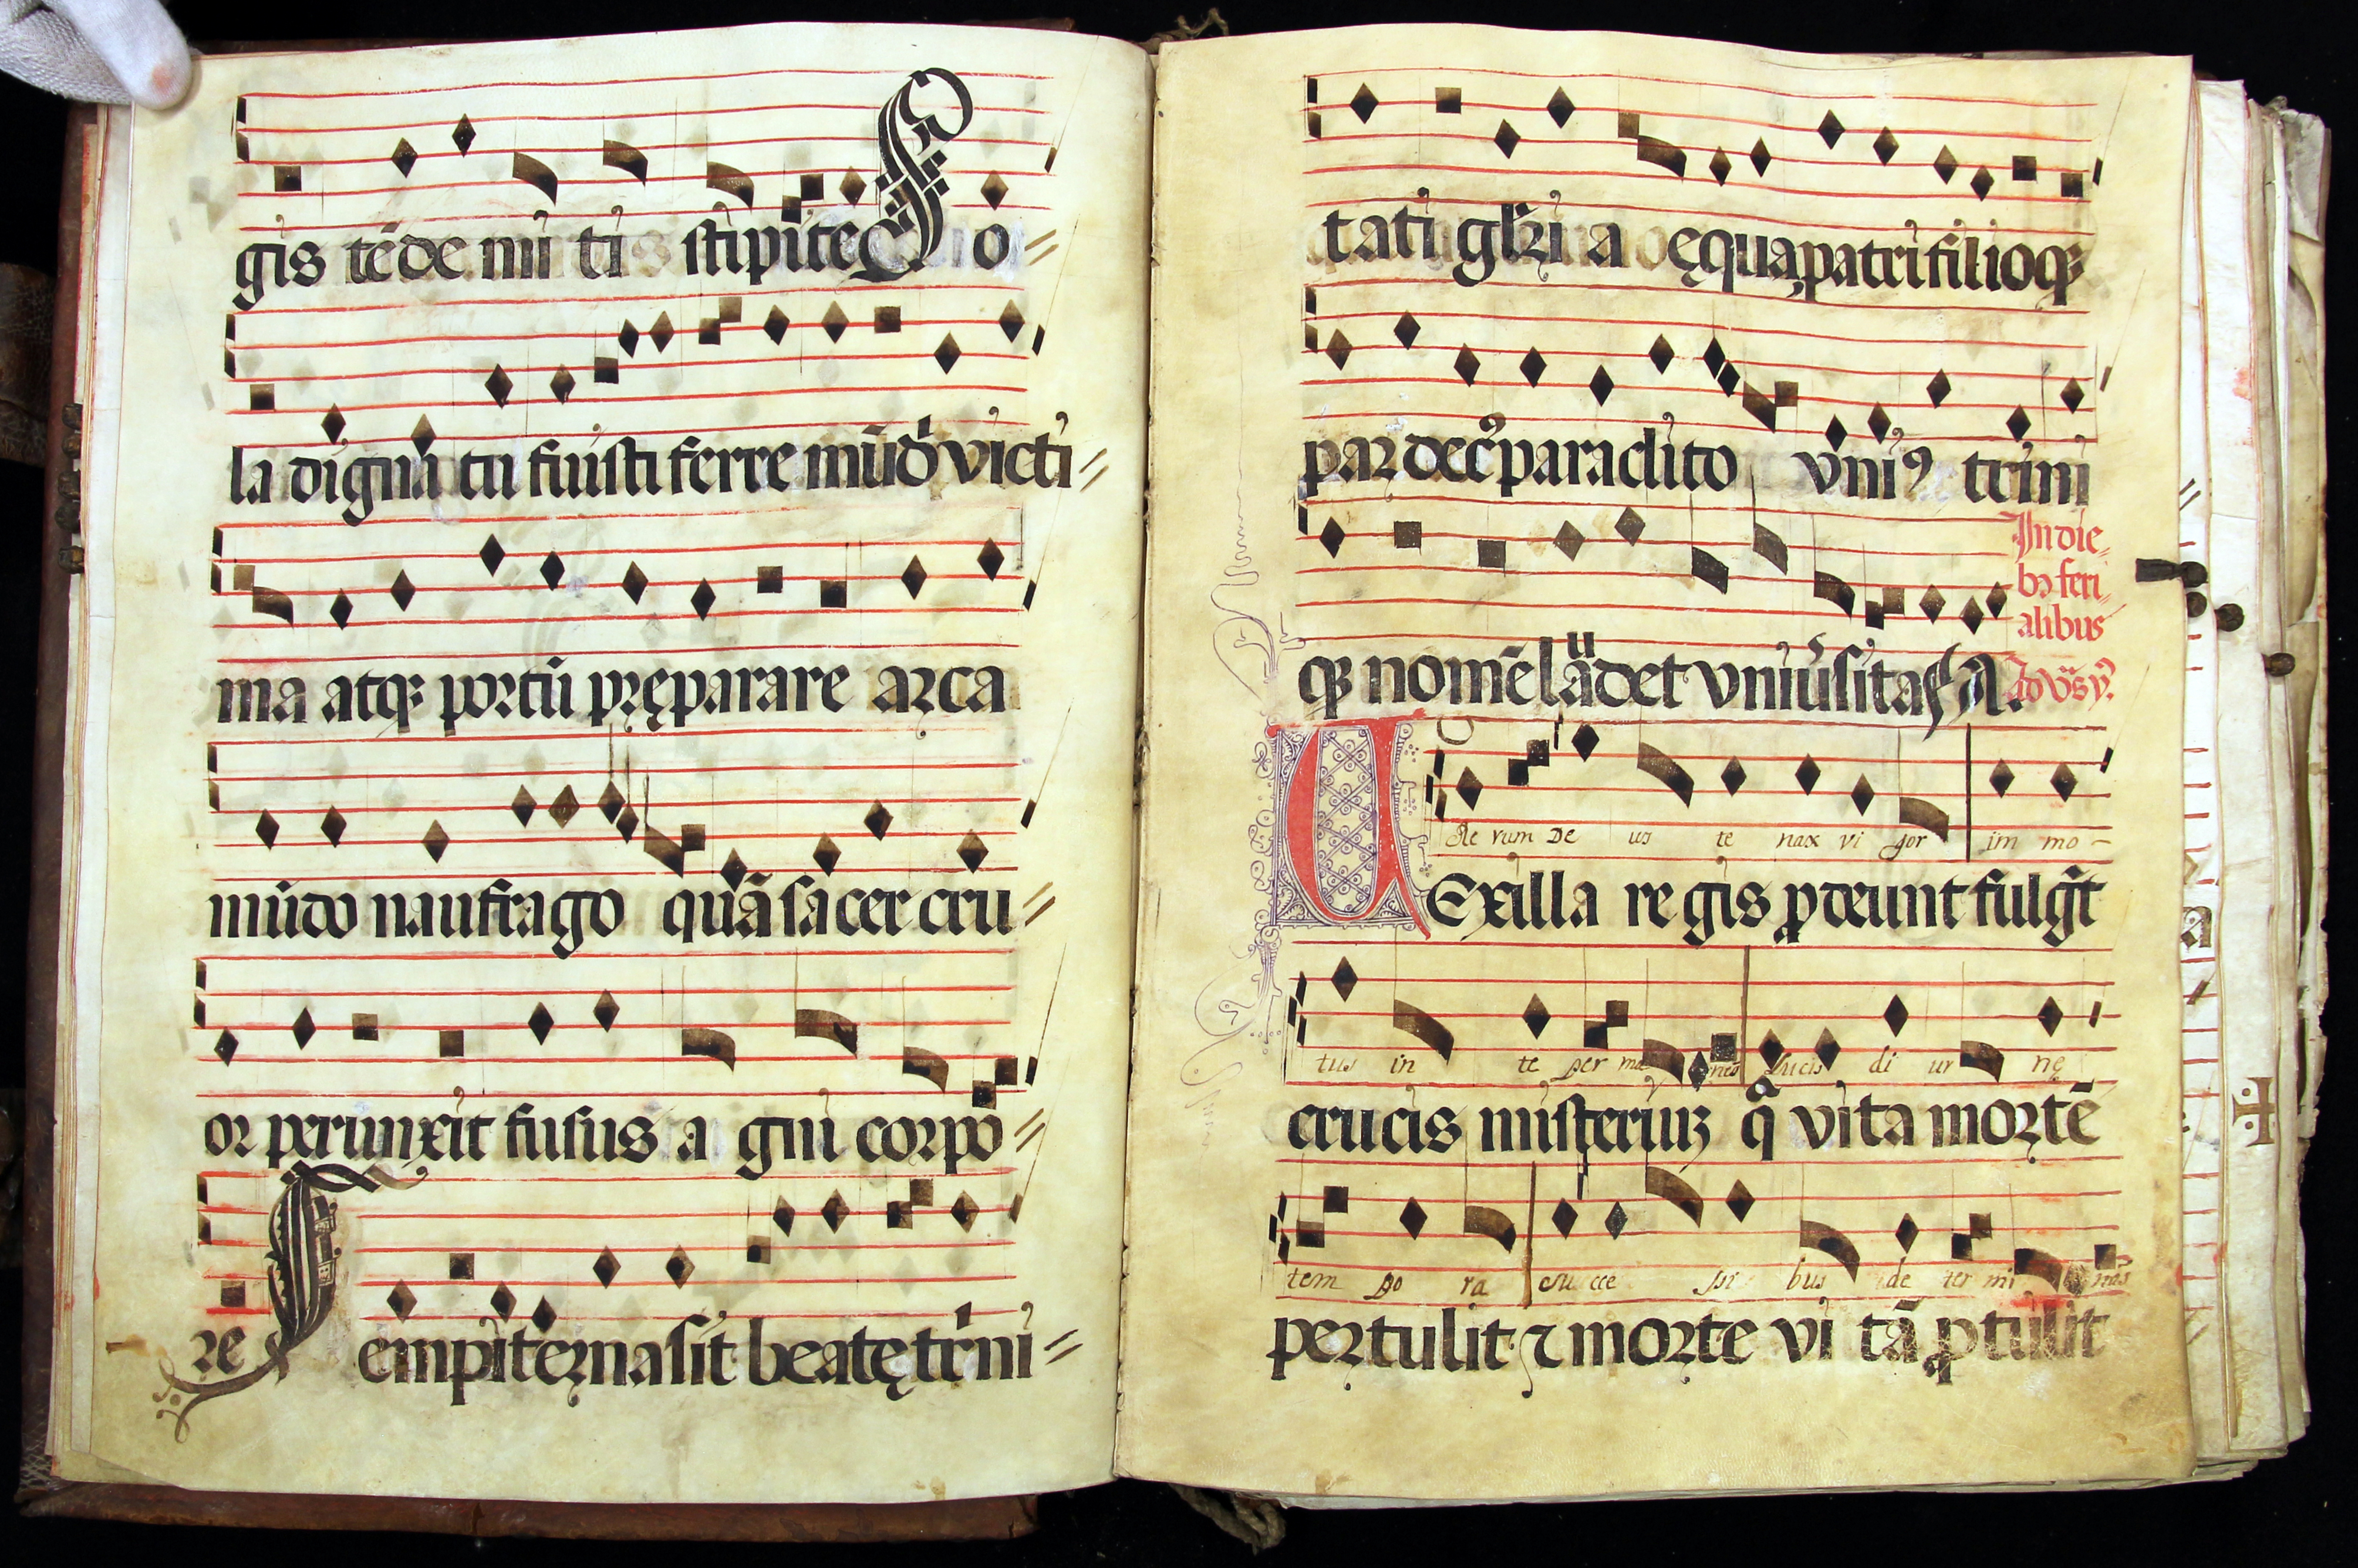 gis tēde mi ti stipite S o=
la digna tu fuisti ferre mūdi victi=
ma atq; portū pręparare arca
mūdo naufrago quā sacer cru=
or perunxit fusus a gni corpo=
re S empiterna sit beatę trini=
tati glri a ęqua patri filioq;
par decꝰ paraclito vniꝰ trini
q; nomē laudet vniūsitas A.
In die=
bꝫ feri=
alibus
Re rum De us te nax vi gor im mo-
VExilla re gis ꝓdeunt fulgēt
tus in te per ma nens Lucis di ur nę
crucis misteriuꝫ q̄ vita mortē
tem po ra su cce ssi bus de ter mi nas
pertulit ⁊ morte vi tā ꝓtulit